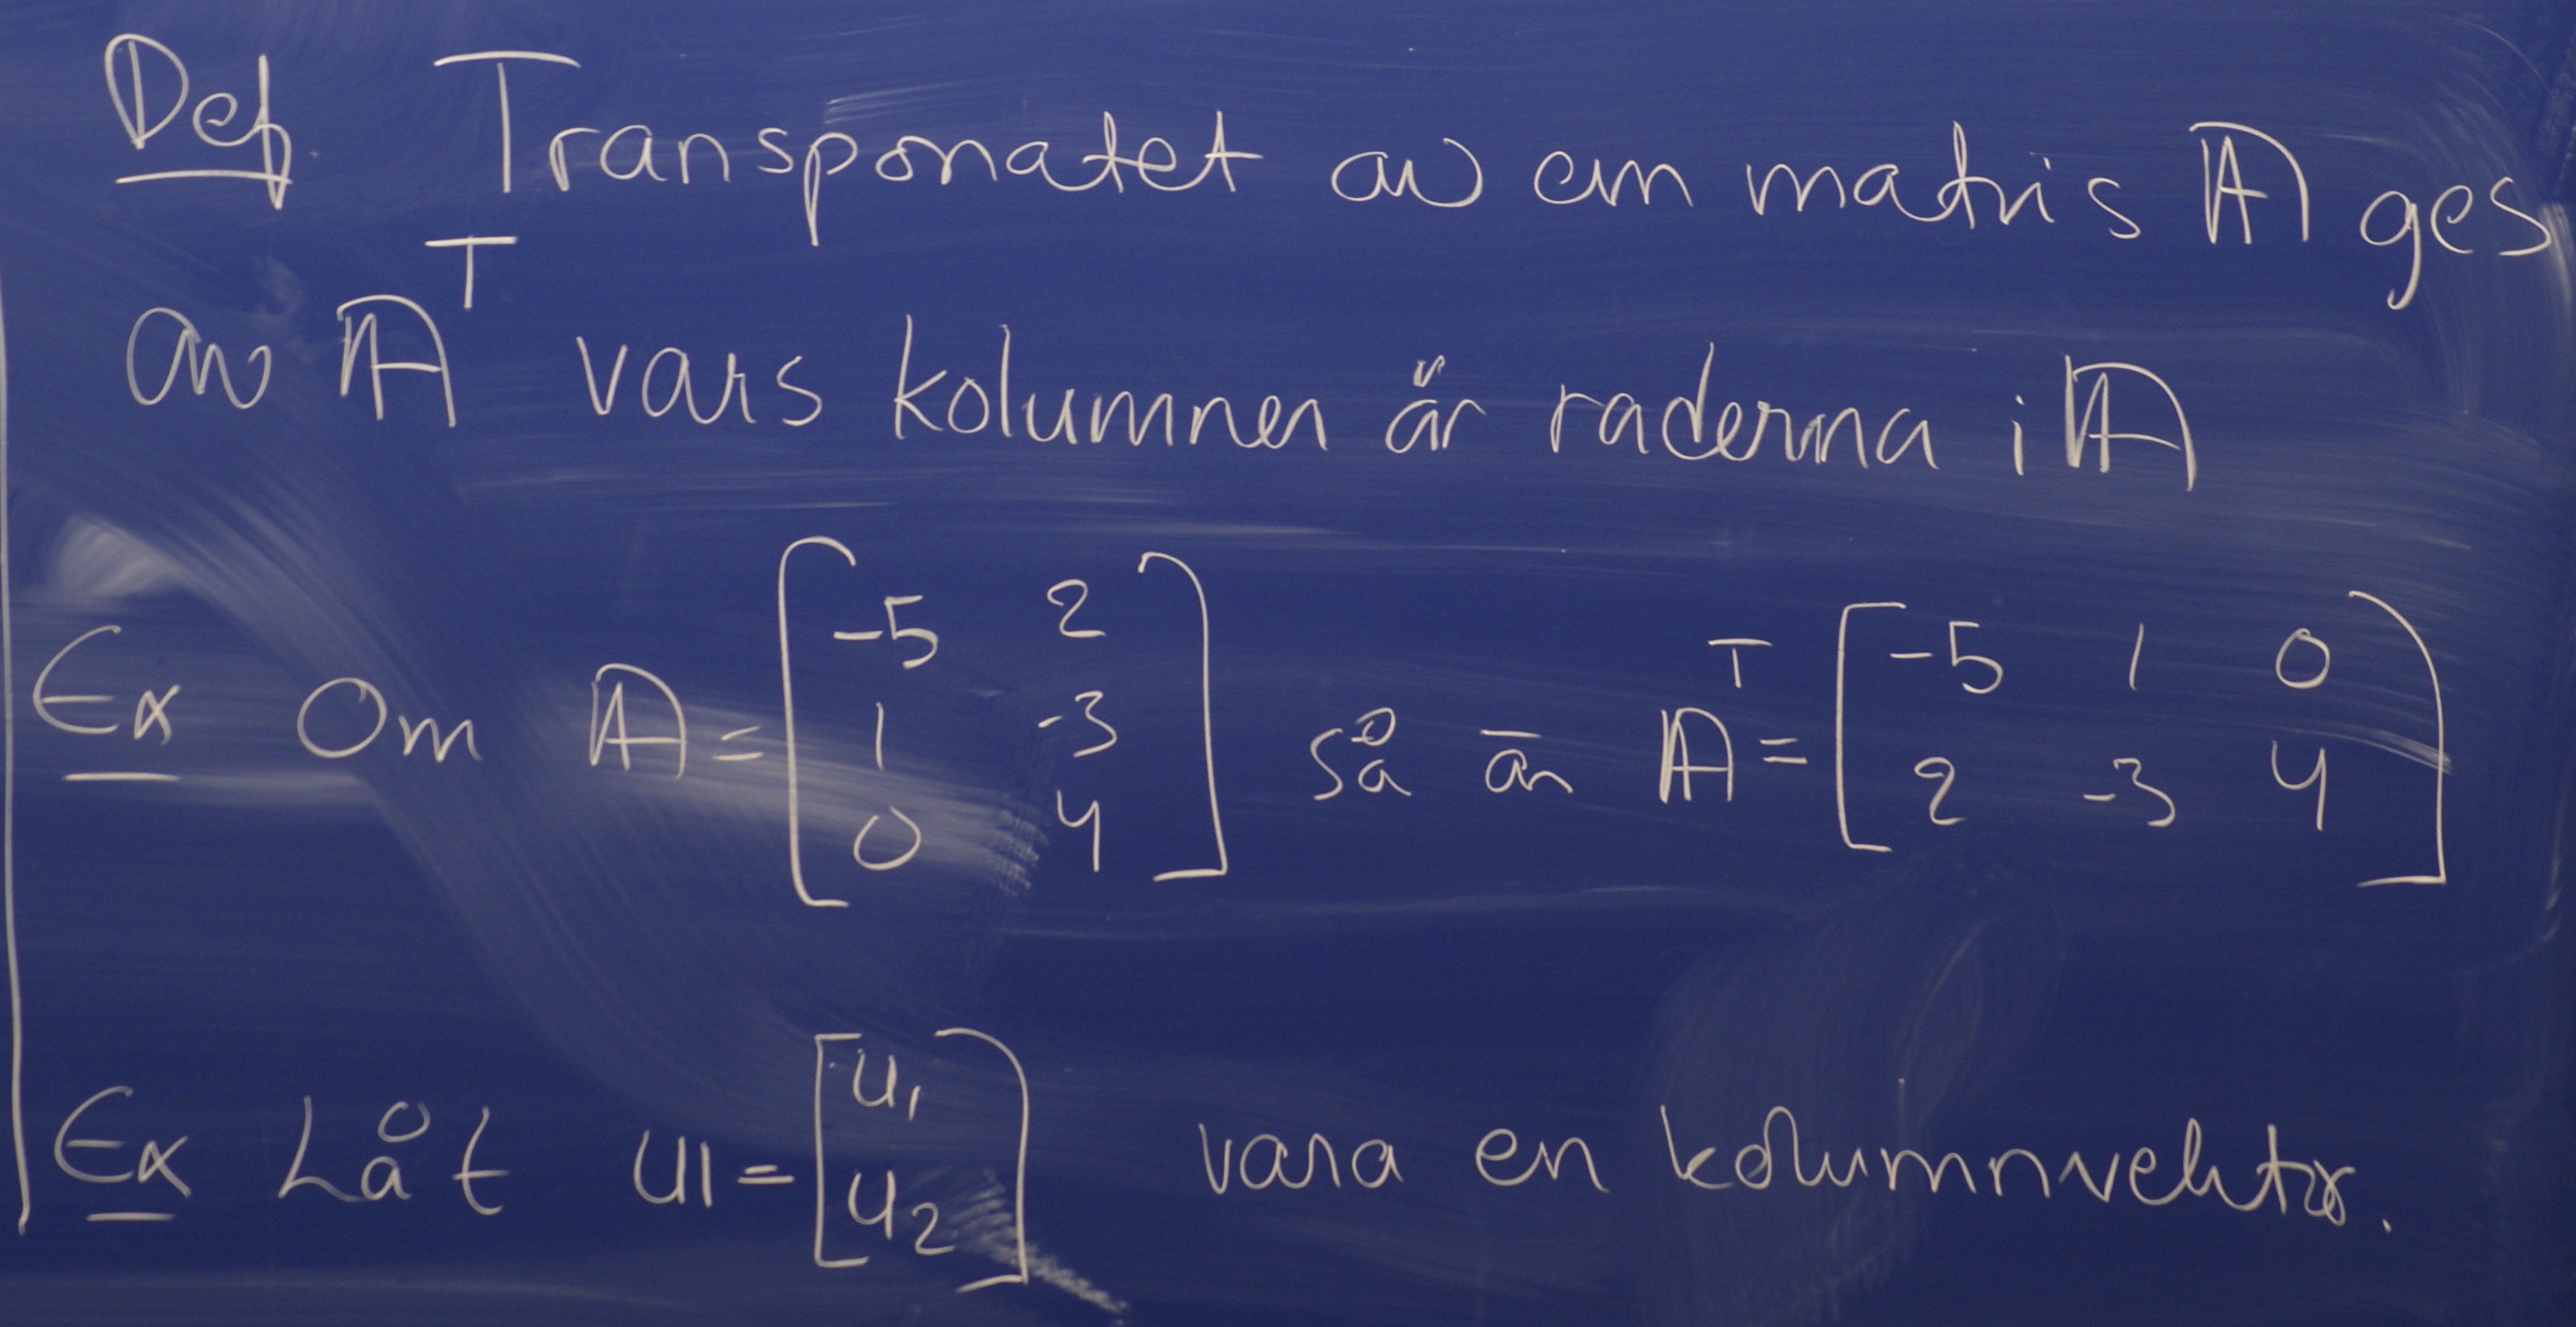 Def. Transponatet av en matris A ges
av Aᵀ vars kolumner är raderna i A
Ex Om A = [-5 2; 1 -3; 0 4] så är Aᵀ = [-5 1 0; 2 -3 4]
Ex Låt u = [u₁; u₂] vara en kolumnvektor.